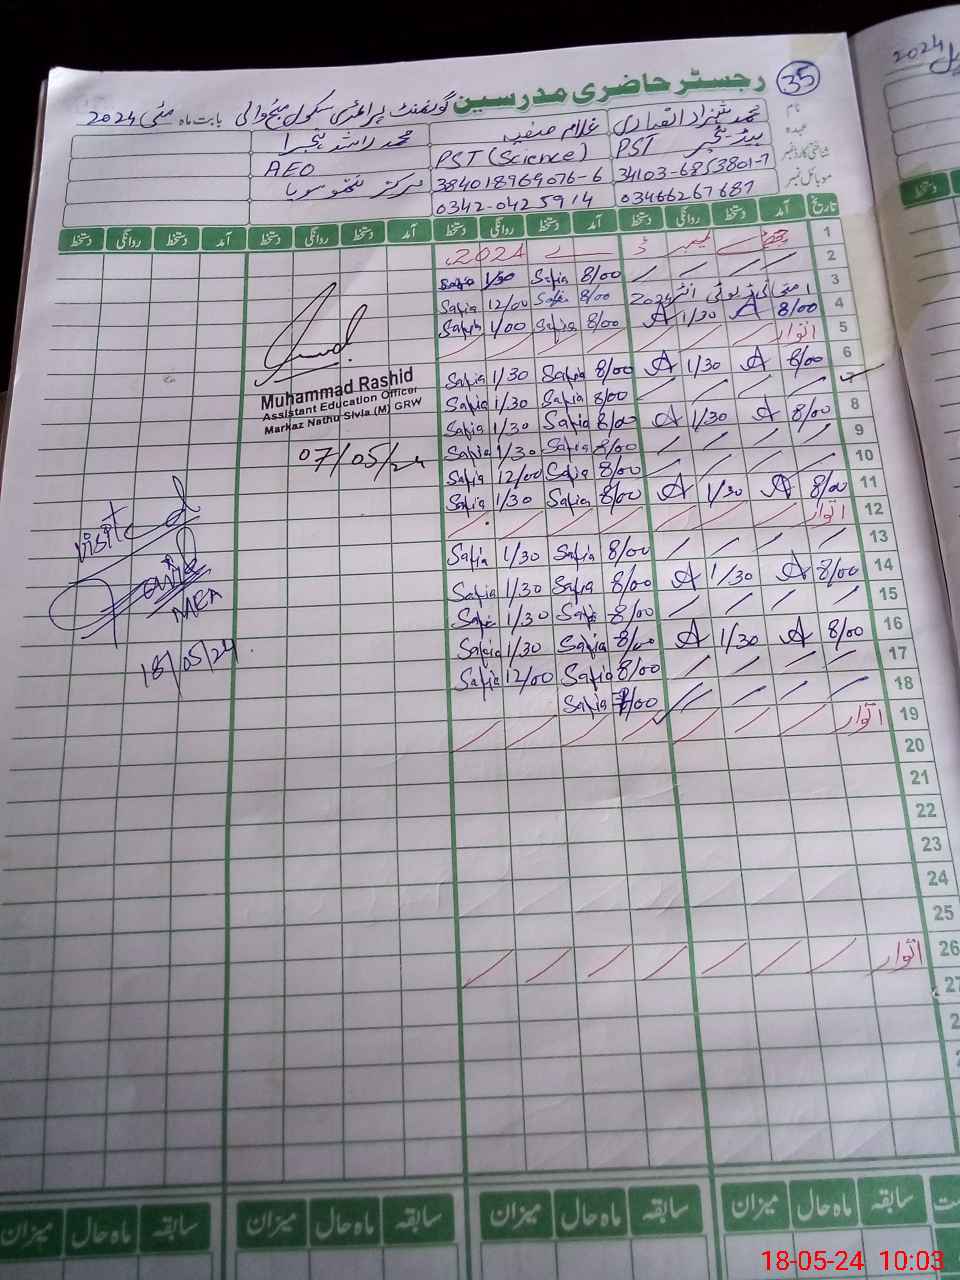 35
رجسٹر حاضری مدرسین گورنمنٹ پرائمری سکول بابت ماہ مئی 2024
نام
غلام صفیہ
محمد راشد
عہدہ
PST
PST (Science)
AEO
شناختی کارڈ نمبر
34103-6853801-7
384018969076-6
مرکز
موبائل نمبر
03466267687
0342-0425914
تاریخ آمد دستخط روانگی دستخط آمد دستخط روانگی دستخط آمد دستخط روانگی دستخط آمد دستخط روانگی دستخط
1 2024
2 8/00 Safia 1/30
3 8/00 Safia 12/00 Safia
4 8/00 A 1/30 A 8/00 Safia 1/00 Safia
5 اتوار
6 8/00 A 1/30 A 8/00 Safia 1/30 Safia
7 8/00 Safia 1/30 Safia
8 8/00 A 1/30 A 8/00 Safia 1/30 Safia
9 8/00 Safia 1/30 Safia
10 8/00 Safia 12/00 Safia
11 8/00 A 1/30 A 8/00 Safia 1/30 Safia
12 اتوار
13 8/00 Safia 1/30 Safia
14 8/00 A 1/30 A 8/00 Safia 1/30 Safia
15 8/00 Safia 1/30 Safia
16 8/00 A 1/30 A 8/00 Safia 1/30 Safia
17 8/00 Safia 12/00 Safia
18 8/00 Safia
19 اتوار
20
21
22
23
24
25
26 اتوار
27
Muhammad Rashid
Assistant Education Officer
Markaz Nathu Sivia (M) GRW
07/05/24
visited
MEA
18/05/24
سابقہ ماہ حال میزان سابقہ ماہ حال میزان سابقہ ماہ حال میزان سابقہ ماہ حال میزان
2024
دستخط
18-05-24 10:03